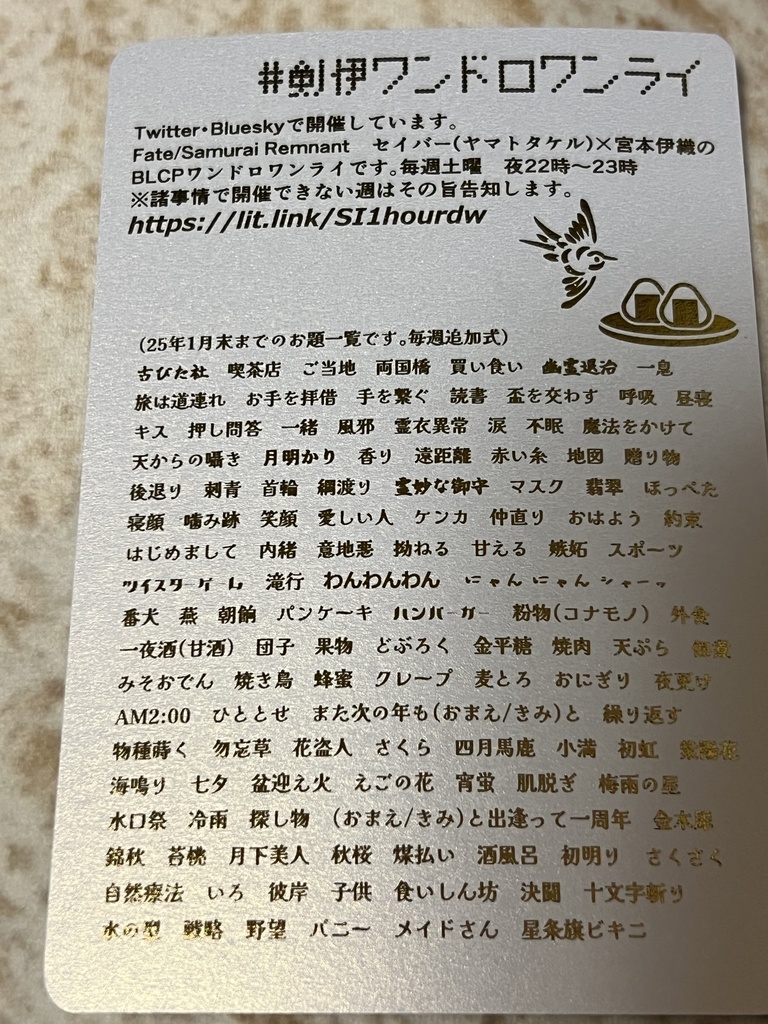 #剣伊ワンドロワンライ
Twitter・Blueskyで開催しています。
Fate/Samurai Remnant　セイバー(ヤマトタケル)×宮本伊織の
BLCPワンドロワンライです。毎週土曜　夜22時～23時
※諸事情で開催できない週はその旨告知します。
https://lit.link/SI1hourdw
(25年1月末までのお題一覧です。毎週追加式)
古びた社　喫茶店　ご当地　両国橋　買い食い　幽霊退治　一息
旅は道連れ　お手を拝借　手を繋ぐ　読書　盃を交わす　呼吸　昼寝
キス　押し問答　一緒　風邪　霊衣異常　涙　不眠　魔法をかけて
天からの囁き　月明かり　香り　遠距離　赤い糸　地図　贈り物
後退り　刺青　首輪　綱渡り　霊妙な御守　マスク　翡翠　ほっぺた
寝顔　噛み跡　笑顔　愛しい人　ケンカ　仲直り　おはよう　約束
はじめまして　内緒　意地悪　拗ねる　甘える　嫉妬　スポーツ
ツイスターゲーム　滝行　わんわんわん　にゃんにゃんシャーッ
番犬　燕　朝餉　パンケーキ　ハンバーガー　粉物(コナモノ)　外食
一夜酒(甘酒)　団子　果物　どぶろく　金平糖　焼肉　天ぷら
みそおでん　焼き鳥　蜂蜜　クレープ　麦とろ　おにぎり　夜更け
AM2:00　ひととせ　また次の年も(おまえ/きみ)と　繰り返す
物種蒔く　勿忘草　花盗人　さくら　四月馬鹿　小満　初虹　紫陽花
海鳴り　七夕　盆迎え火　えごの花　宵蛍　肌脱ぎ　梅雨の星
水口祭　冷雨　探し物　(おまえ/きみ)と出逢って一周年　金木犀
錦秋　苔桃　月下美人　秋桜　煤払い　酒風呂　初明り　さくさく
自然療法　いろ　彼岸　子供　食いしん坊　決闘　十文字斬り
水の型　戦略　野望　バニー　メイドさん　星条旗ビキニ